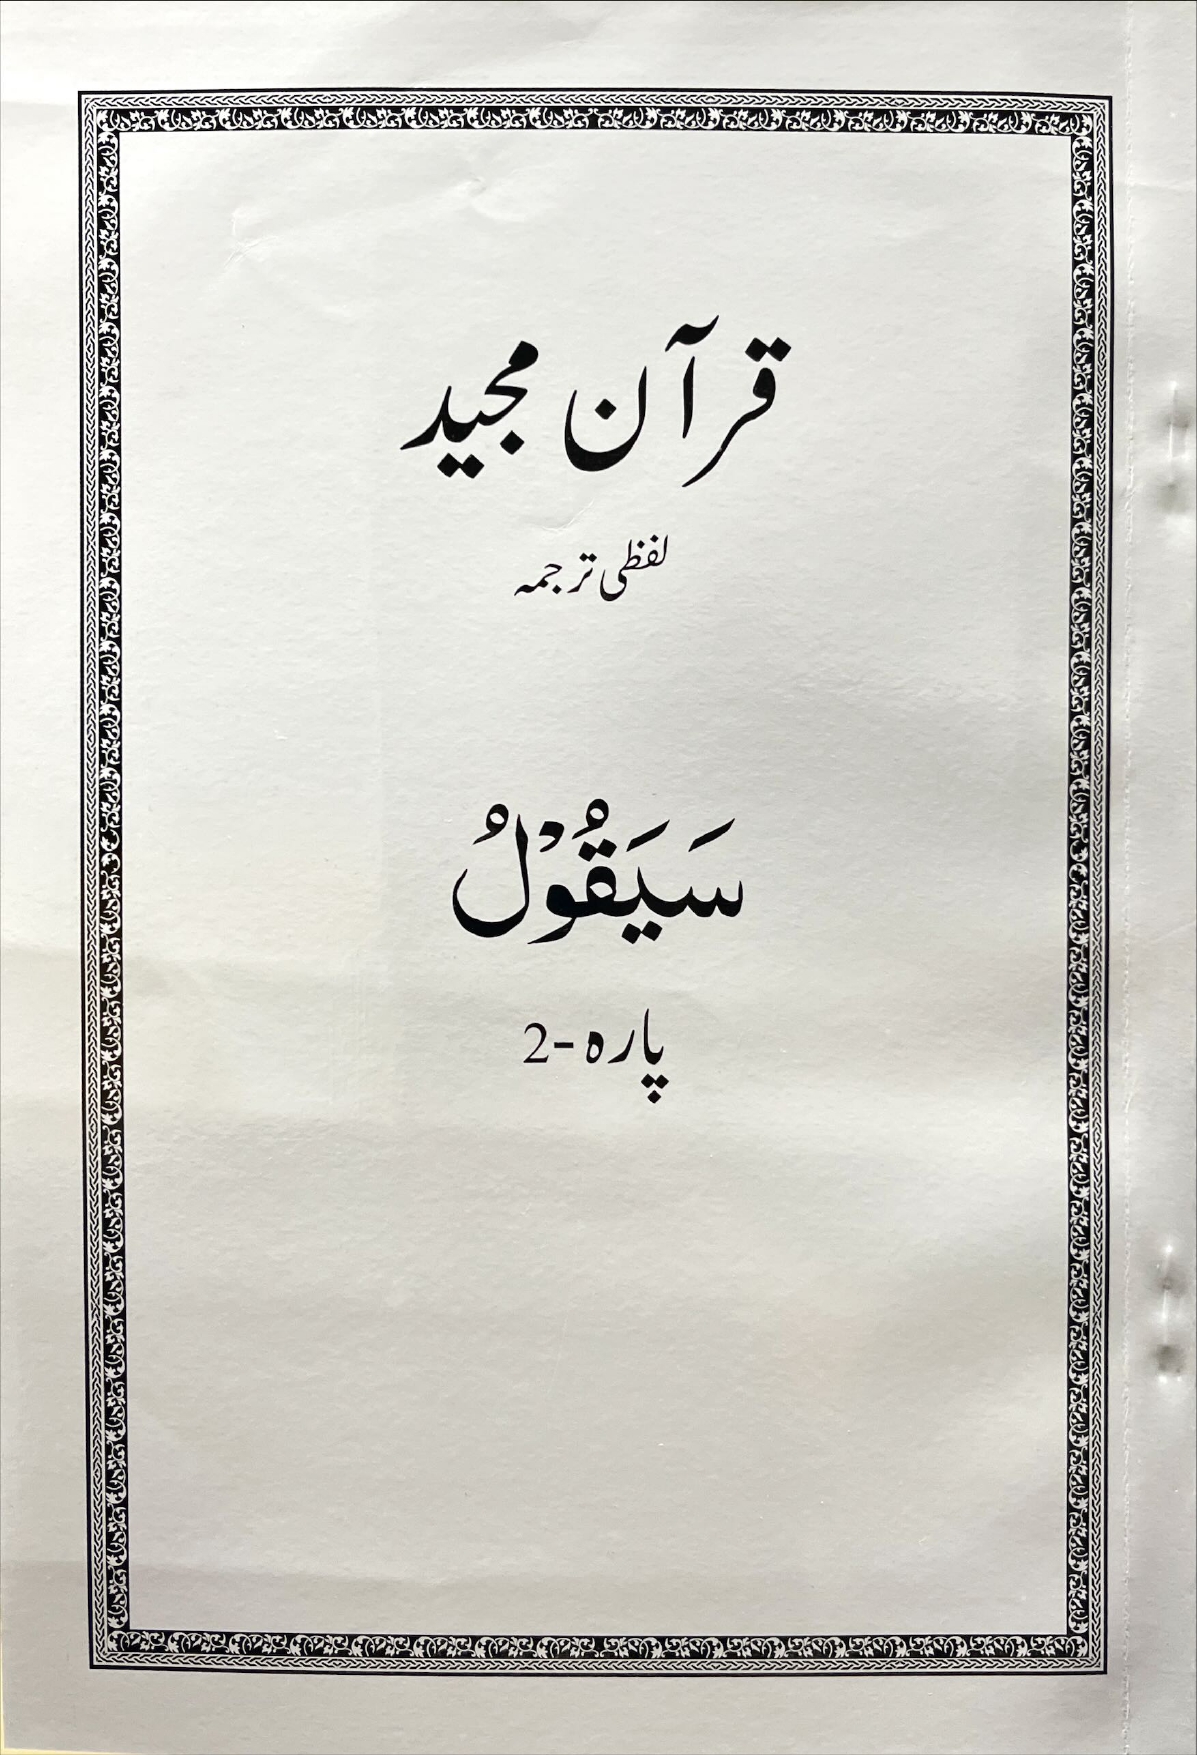 قرآن مجید
لفظی ترجمہ
سَيَقُوْلُ
پارہ -2